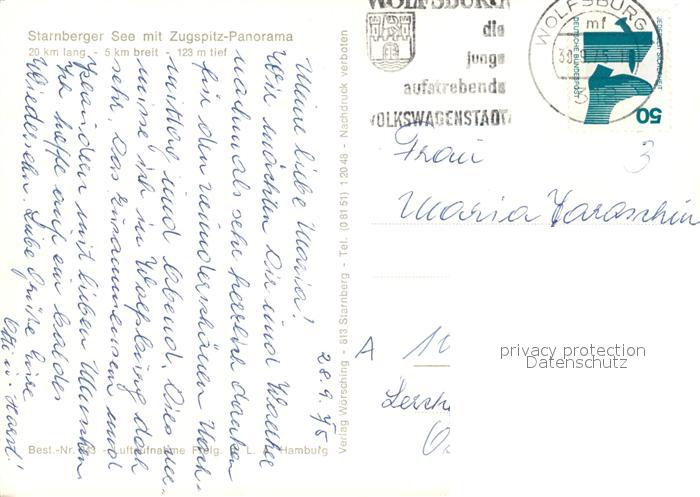 Starnberger See mit Zugspitz-Panorama
20 km lang - 5 km breit - 123 m tief
28.9.75
Meine liebe Maria!
Wir möchten Dir und Walther
nochmals sehr herzlich danken
für den wunderschönen Nach-
mittag und Abend. Dies ver-
misse ich in Wolfsburg doch
sehr. Das Zusammensein mit
Freunden mit lieben Menschen.
Ich hoffe auf ein baldes
Wiedersehn. Liebe Grüße Eure
u. Horst!
Best.-Nr. Luftaufnahme Freig. L. A. Hamburg
Verlag Wörsching - 813 Starnberg - Tel. (08151) 12048 - Nachdruck verboten
WOLFSBURG
die
junge
aufstrebende
VOLKSWAGENSTADT
WOLFSBURG
mf
DEUTSCHE BUNDESPOST
50
Frau
3
Maria Taraschin
A 10
Lerch
privacy protection
Datenschutz